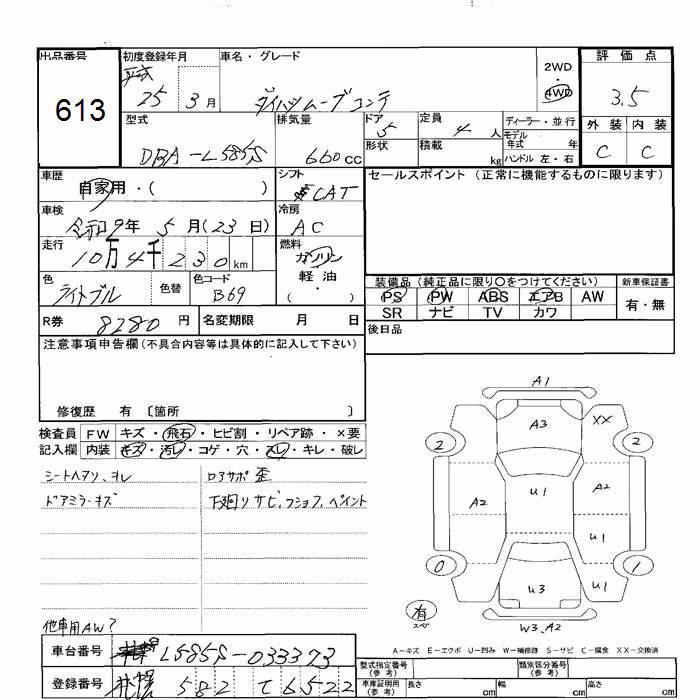 出品番号
613
初度登録年月
平成
25 3月
車名・グレード
ダイハツムーブコンテ
2WD
・
4WD
評価点
3.5
外装 内装
C C
型式
DBA-L585S
排気量
660cc
ドア
5
形状
定員
4人
積載
kg
ディーラー・並行
モデル年式 年
ハンドル 左・右
車歴
自家用・( )
シフト
CAT
セールスポイント (正常に機能するものに限ります)
車検
令和9年 5月(23日)
冷房
AC
走行
10万4千230km
燃料
ガソリン
軽油
( )
色
ライトブル
色替
色コード
B69
装備品 (純正品に限り○をつけてください)
PS PW ABS エアB AW
SR ナビ TV カワ
新車保証書
有・無
R券 8280円
名変期限 月 日
後日品
注意事項申告欄(不具合内容等は具体的に記入して下さい)
修復歴 有 〔箇所 〕
検査員
記入欄
FW キズ・飛石・ヒビ割・リペア跡・×要
内装 キズ・汚レ・コゲ・穴・スレ・キレ・破レ
シートヘタリ、ヨレ
ロアサポ 歪
ドアミラーキズ
下廻りサビ、フショク、ペイント
他車用AW?
A1
A3
XX
2
2
A2
U1
A2
U1
0
U3
U1
1
有
スペア
W3、A2
A-キズ E-エクボ U-凹み W-補修跡 S-サビ C-腐食 XX-交換済
車台番号 L585S-033373
登録番号 582 て6522
型式指定番号
(参考)
類別区分番号
(参考)
車庫証明用
(参考)
長さ cm
幅 cm
高さ cm